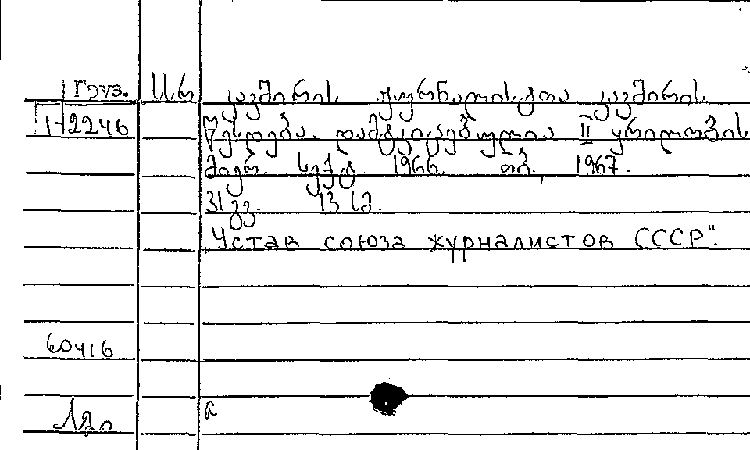 Груз. სსრ კავშირის ჟურნალისტთა კავშირის
1-2246 წესდება. დამტკიცებულია II ყრილობის
მიერ. სექტ. 1966. თბ., 1967.
31 გვ. 13 სმ.
"Устав союза журналистов СССР".
60416